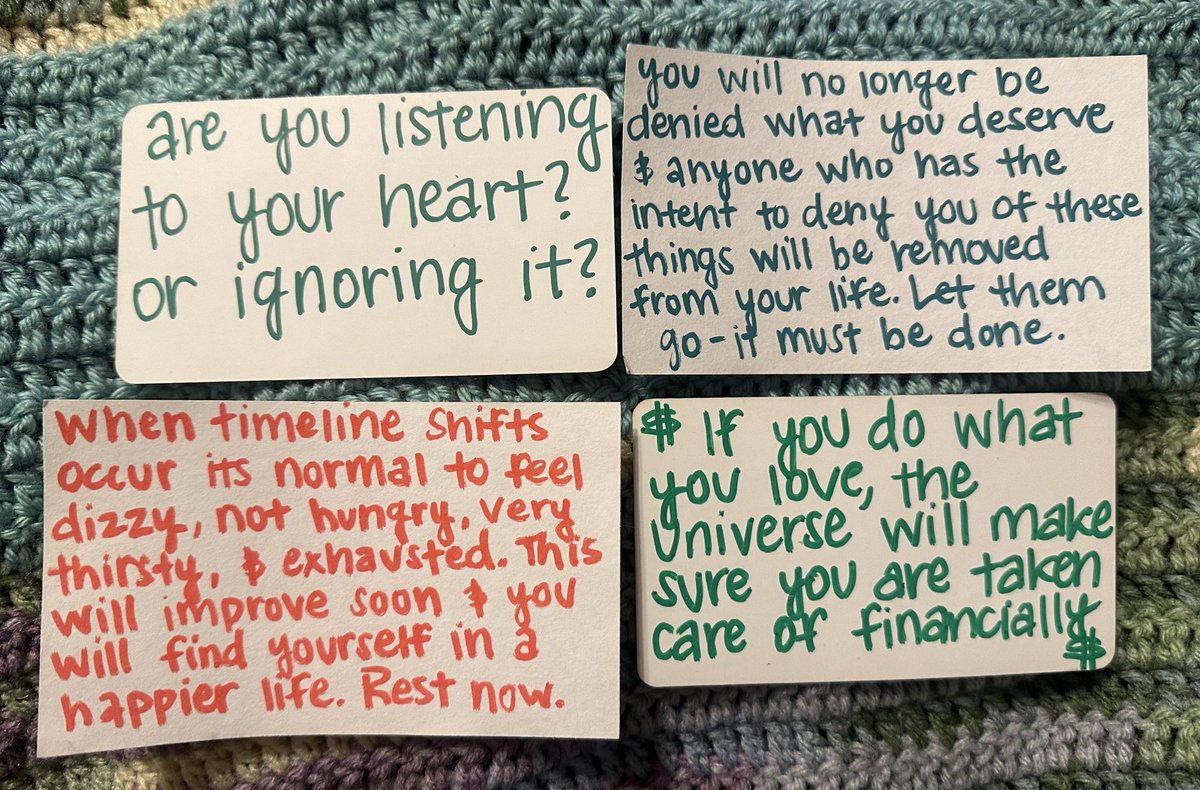 are you listening
to your heart?
or ignoring it?
you will no longer be
denied what you deserve
& anyone who has the
intent to deny you of these
things will be removed
from your life. Let them
go - it must be done.
When timeline shifts
occur its normal to feel
dizzy, not hungry, very
thirsty, & exhausted. This
will improve soon & you
will find yourself in a
happier life. Rest now.
$ If you do what
you love, the
Universe will make
sure you are taken
care of financially
$